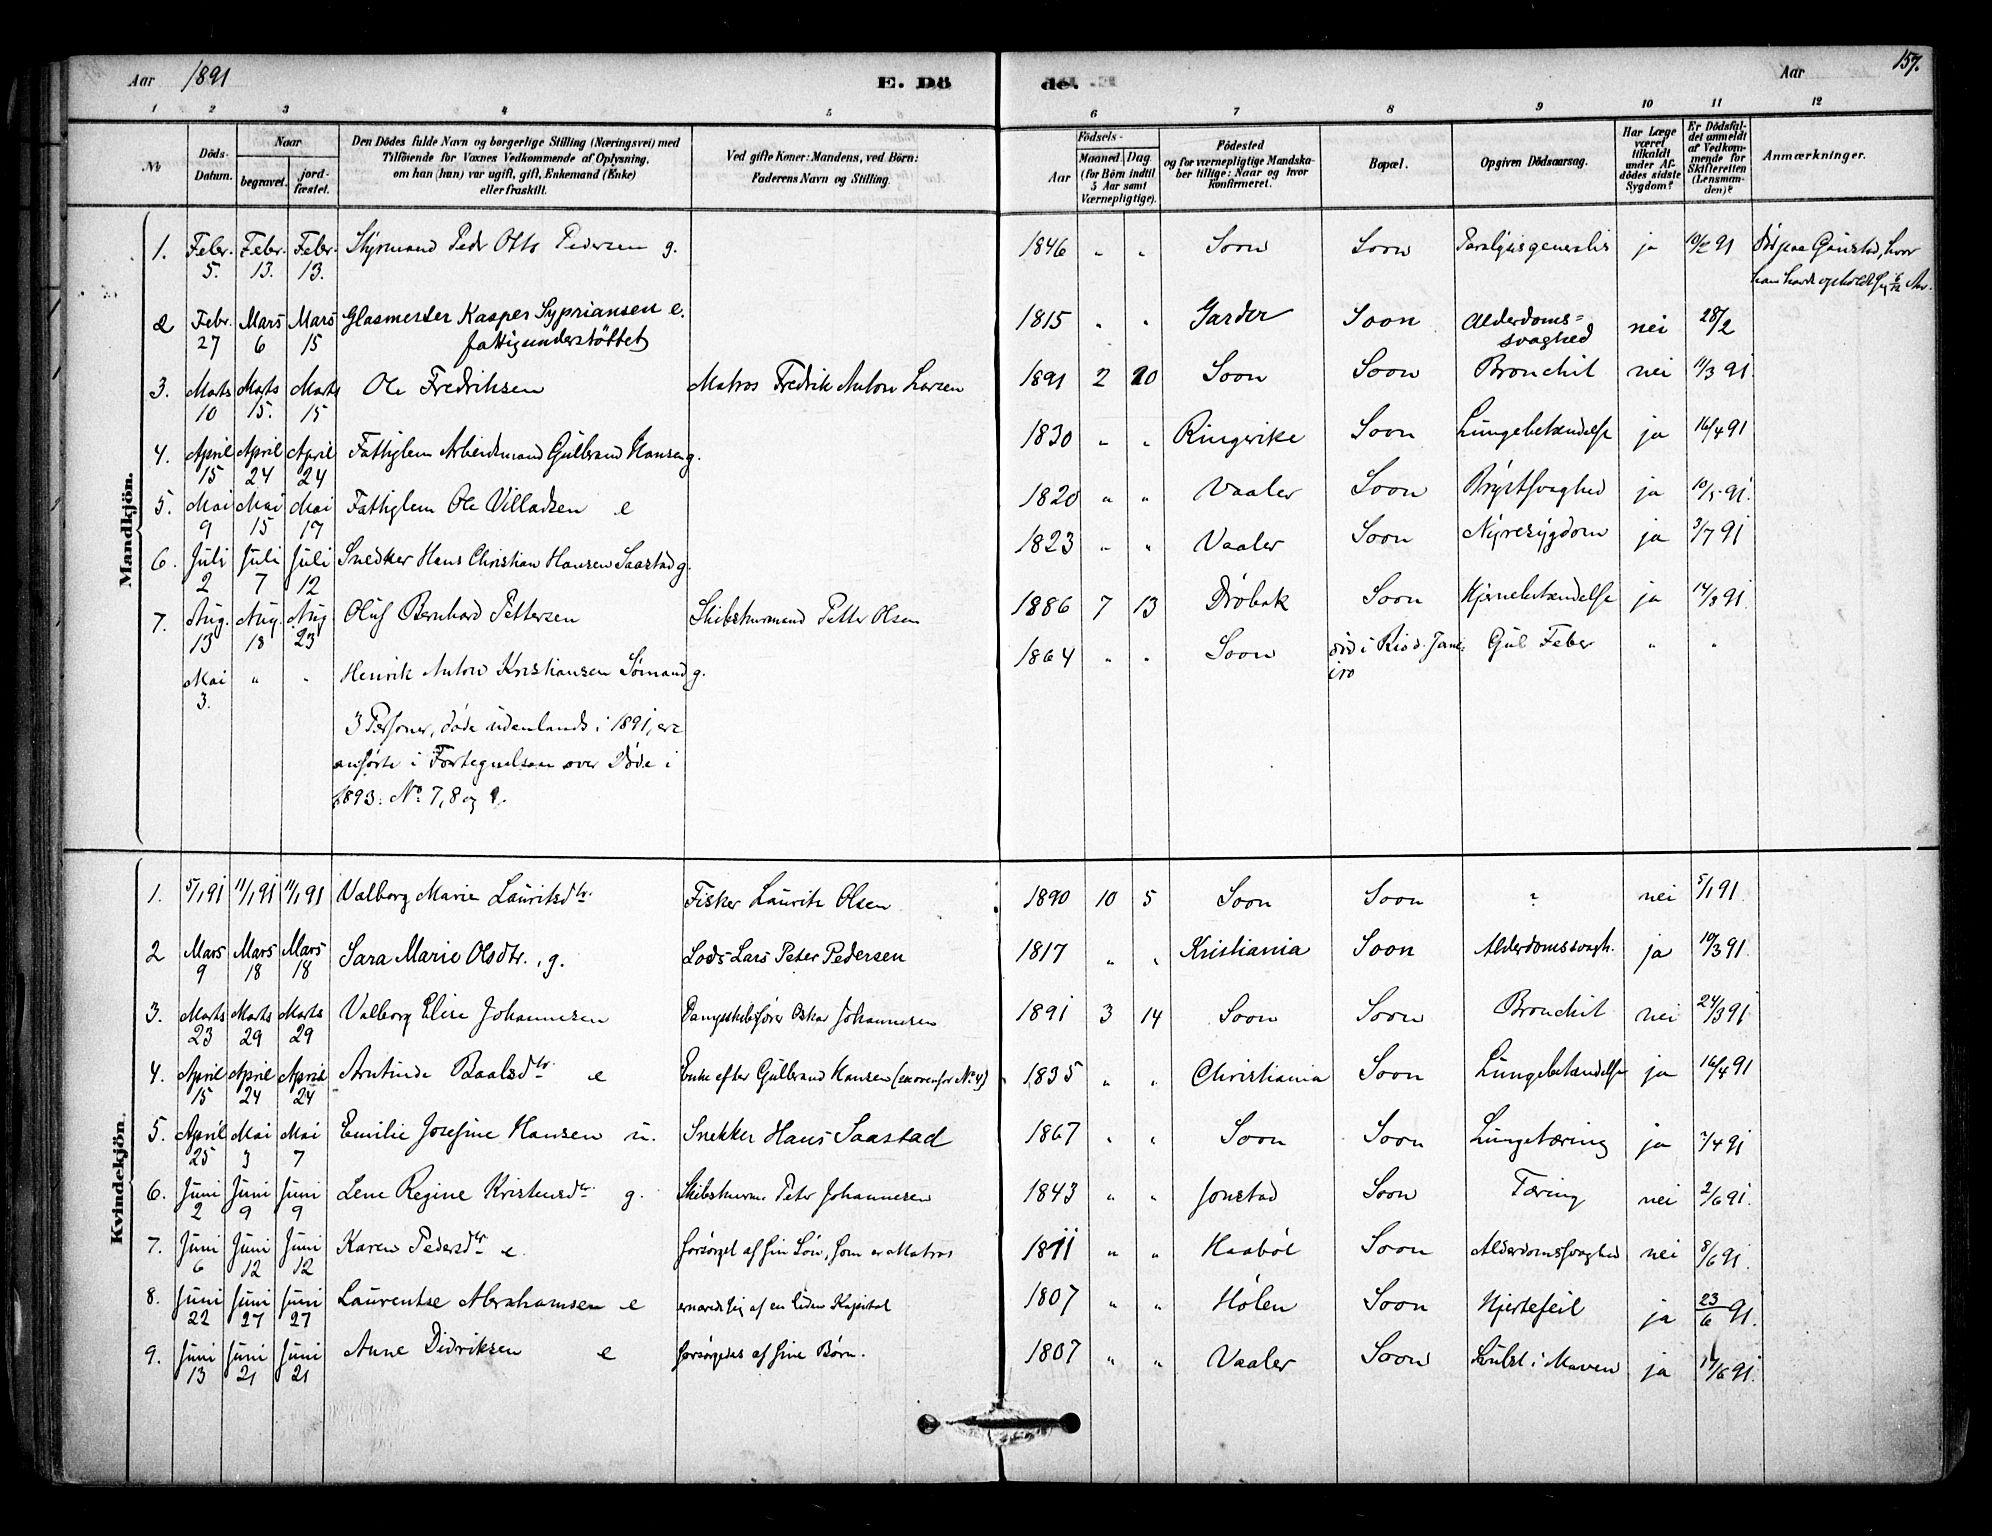 Aar 1891 E. Döde. Aar 157.
1 2 3 4 5 6 7 8 9 10 11 12
No
Döds-Datum.
Naar begravet. jordfæstet.
Den Dödes fulde Navn og borgerlige Stilling (Næringsvei) med
Tilföiende for Voxnes Vedkommende af Oplysning,
om han (hun) var ugift, gift, Enkemand (Enke)
eller fraskilt.
Ved gifte Koner: Mandens, ved Börn:
Faderens Navn og Stilling.
Födsels-
Aar Maaned. Dag.
(for Börn indtil
5 Aar samt
Værnepligtige).
Födested
og for værnepligtige Mandskaber tillige: Naar og hvor
konfirmeret.
Bopæl.
Opgiven Dödsaarsag.
Har Læge været tilkaldt under Afdödes sidste Sygdom?
Er Dödsfaldet anmeldt af Vedkommende for Skifteretten (Lensmanden)?
Anmærkninger.
Mandkjön.
1. Febr. 5. Febr. 13. Febr. 13. Styrmand Peder Otto Pedersen g. 1846 " " Soon Soon Paralysis generalis ja 10/2 91 Död paa Gaustad, hvor
han havde opholdt sig Aar.
2 Febr. 27 Mars 6 Mars 15 Glasmester Kasper Sypriansen e. 1815 " " Garder Soon Alderdoms=svaghed nei 28/2
fattigunderstöttet
3. Marts 10 Marts 15. Marts 15 Ole Fredriksen Matros Fredrik Anton Larsen 1891 2 20 Soon Soon Bronchit nei 11/3 91
4. April 15 April 24 April 24 Fattiglem Arbeidsmand Gulbrand Hansen g. 1830 " " Ringerike Soon Lungebetændelse ja 16/4 91
5. Mai 9 Mai 15 Mai 17 Fattiglem Ole Villadsen e 1820 " " Vaaler Soon Brystsvaghed ja 10/5 91.
6. Juli 2 Juli 7 Juli 12 Snedker Hans Christian Hansen Saastad g. 1823 " " Vaaler Soon Nyresygdom ja 3/7 91
7. Aug. 13 Aug. 18 Aug 23 Oluf Bernhard Pettersen Skibstømmand Petter Olsen 1886 7 13 Drøbak Soon Hjernebetændelse ja 14/8 91.
Mai 3. " " Henrik Anton Kristiansen Sømand g. 1864 " " Soon död i Rio d. Janeiro Gul Feber " "
3 Personer, døde udenlands i 1891, ere
anførte i Fortegnelsen over Døde i
1893. No 7, 8 og 9.
Kvindekjön.
1. 5/1 91 11/1 91 11/1 91 Valborg Marie Lauritsdtr. Fisker Laurits Olsen 1890 10 5 Soon Soon ? nei 5/1 91.
2 Mars 9 Mars 18 Mars 18 Sara Marie Olsdtr. g. Lods Lars Peter Pedersen 1817 " " Kristiania Soon Alderdomssvagh. ja 10/3 91.
3. Marts 23 Marts 29 Marts 29 Valborg Elise Johannesen Dampskibsfører Oskar Johannesen 1891 3 14 Soon Soon Bronchit nei 24/3 91
4. April 15 April 24 April 24 Baalsdtr. e Enke efter Gulbrand Hansen (se ovenfor No 4) 1835 " " Christiania Soon Lungebetændelse ja 16/4 91
5. April 25 Mai 3 Mai 7 Emilie Josefine Hansen u. Snekker Hans Saastad 1867 " " Soon Soon Lungetæring ja /4 91
6. Juni 2 Juni 9 Juni 9 Lene Regine Kristensdtr. g. Skibstømm. Peter Johannesen 1843 " " Jonstad Soon Tæring nei 2/6 91.
7. Juni 6 Juni 12 Juni 12 Karen Pedersdtr e. forsørget af sin Søn, som er Matros 1811 " " Haabøl Soon Alderdomssvaghed nei 8/6 91.
8. Juni 22 Juni 27 Juni 27 Laurentse Abrahamsen e ernærede sig af en liden Kapital 1807 " " Hølen Soon Hjertefeil ja 23/6 91.
9. Juni 13 Juni 21 Juni 21 Anne Didriksen e forsørgedes af sine Børn. 1807 " " Vaaler Soon Svulst i Maven ja 14/6 91.